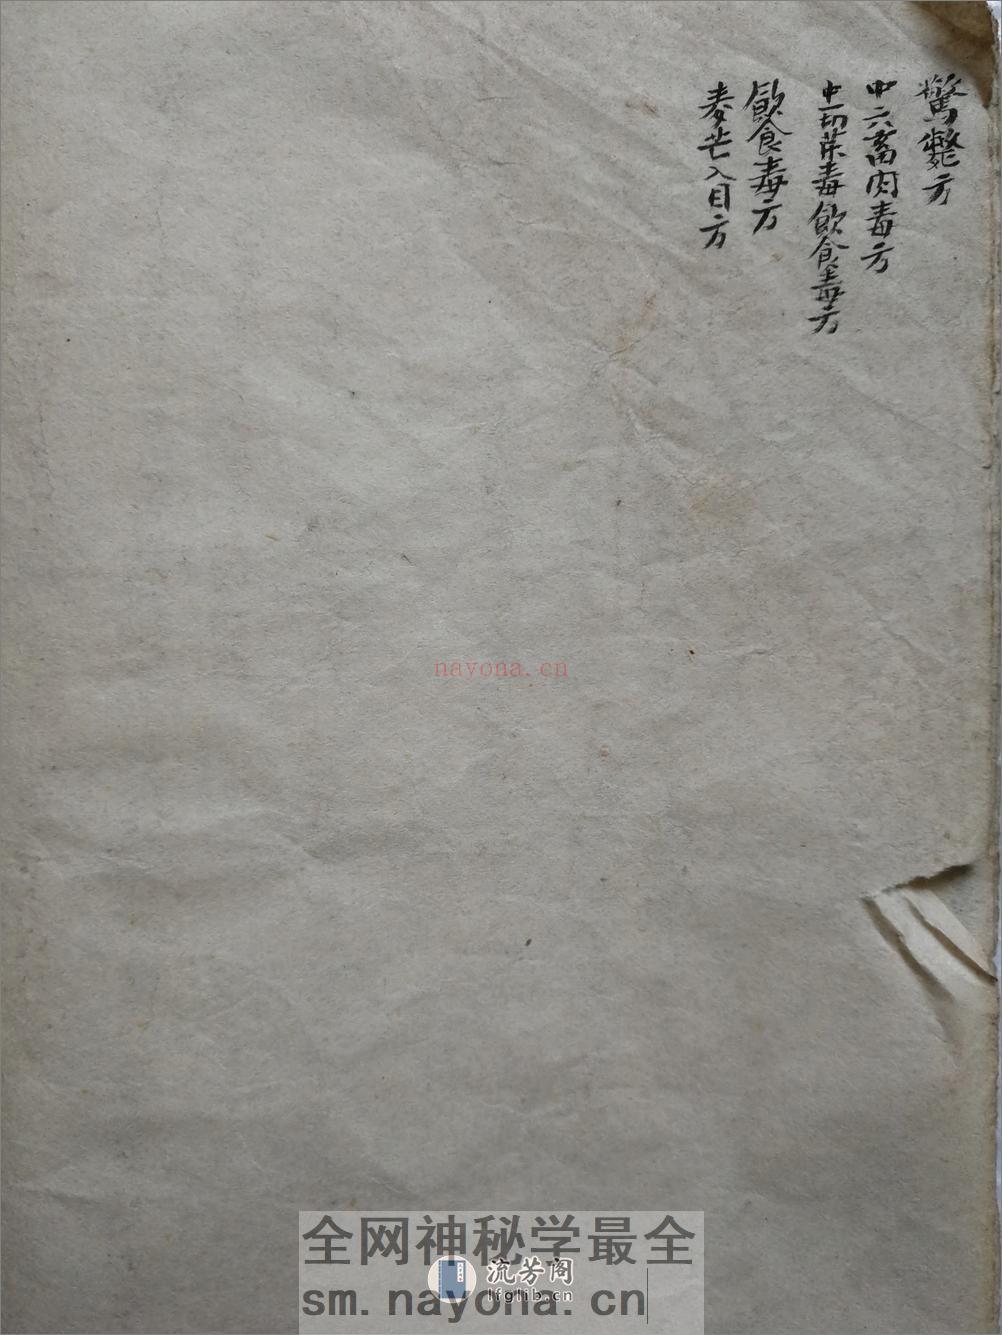 驚斃方
中六畜肉毒方
中一切菜毒飲食毒方
飲食毒方
麥芒入目方
nayona.cn
全网神秘学最全
流芳阁
lfglib.cn
sm.nayona.cn